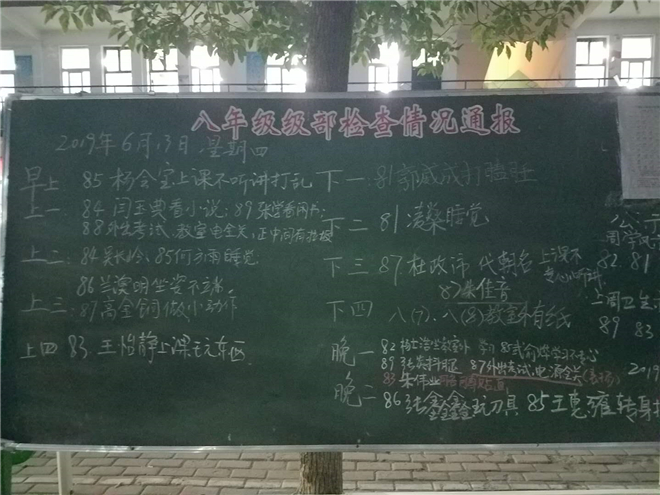 八年级级部检查情况通报
2019年6月13日 星期四
早上 85 杨会宝上课不听讲打乱
上一 84 闫玉典看小说；89
88外出考试，教室电全关，正中间有拖把
上二：84 吴 85何方雨睡觉
86 兰溟明坐姿不端
上三：87高全铜做小动作
上四 83 王怡静上课玩东西
下一 81郭威成打瞌睡
下二 81 凌燊睡觉
下三 87 杜政沛 代朝名 上课不专心听讲
87 朱佳音
下四 八(7)、八(8)教室外有纸
晚一 82 教室外 学习 85武俞烨学习不专心
89 87外出考试,电源全关(表扬)
83 朱伟业
晚二 86 张鑫鑫玩刀具 85王惠雍转身
公示
周学风
82 81
上周卫生
89 83
2019